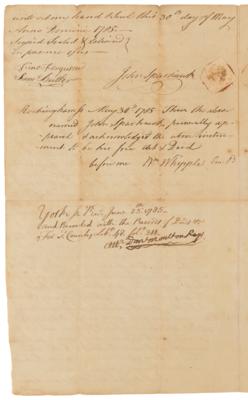 and seal my hand this 30th day of May
Anno Domini 1785.
Signed Sealed & delivered
in presence of us
John Sparhawk
Rockingham ss May 30th 1785 Then the above
named John Sparhawk personally ap-
peared & acknowledged the above Instru-
ment to be his free Act & Deed
before me Wm Whipple
York ss Recd June 25th 1785.
and Recorded with the Records of Deeds
for sd County Lib. 48. Fol.